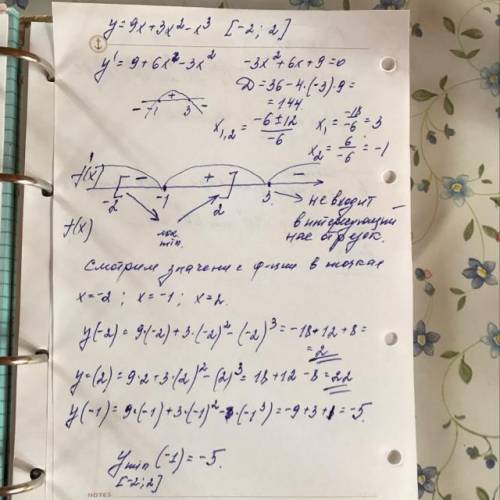 y=9x+3x²-x³ [-2; 2]
y'=9+6x-3x² -3x²+6x+9=0
D=36-4·(-3)·9=
=144
x₁,₂=(-6±12)/-6 x₁=-18/-6=3
x₂=6/-6=-1
+
- -1 3 -
f'(x) - + -
-2 -1 2 3
f(x) лок. min. не входит
в интересующий
нас отрезок.
Смотрим значение ф-ции в точках
x=-2; x=-1; x=2.
y(-2)=9·(-2)+3·(-2)²-(-2)³=-18+12+8=
=2
y=(2)=9·2+3·(2)²-(2)³=18+12-8=22
y(-1)=9·(-1)+3·(-1)²-(-1³)=-9+3+1=-5.
y min (-1)=-5.
[-2;2]
NOTES